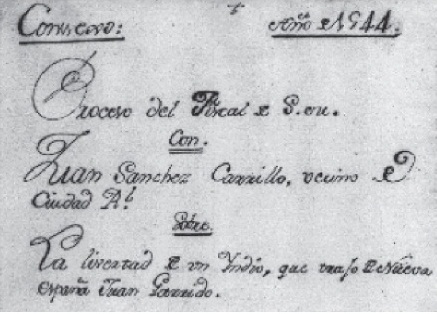 Consexo: Año de 1544.
Proceso del Fiscal de S.M.
Con.
Juan Sanchez Carrillo, vecino de
Ciudad Rl
Sobre
La libertad de un Yndio, que traxo de Nueva
España Juan Garrido.